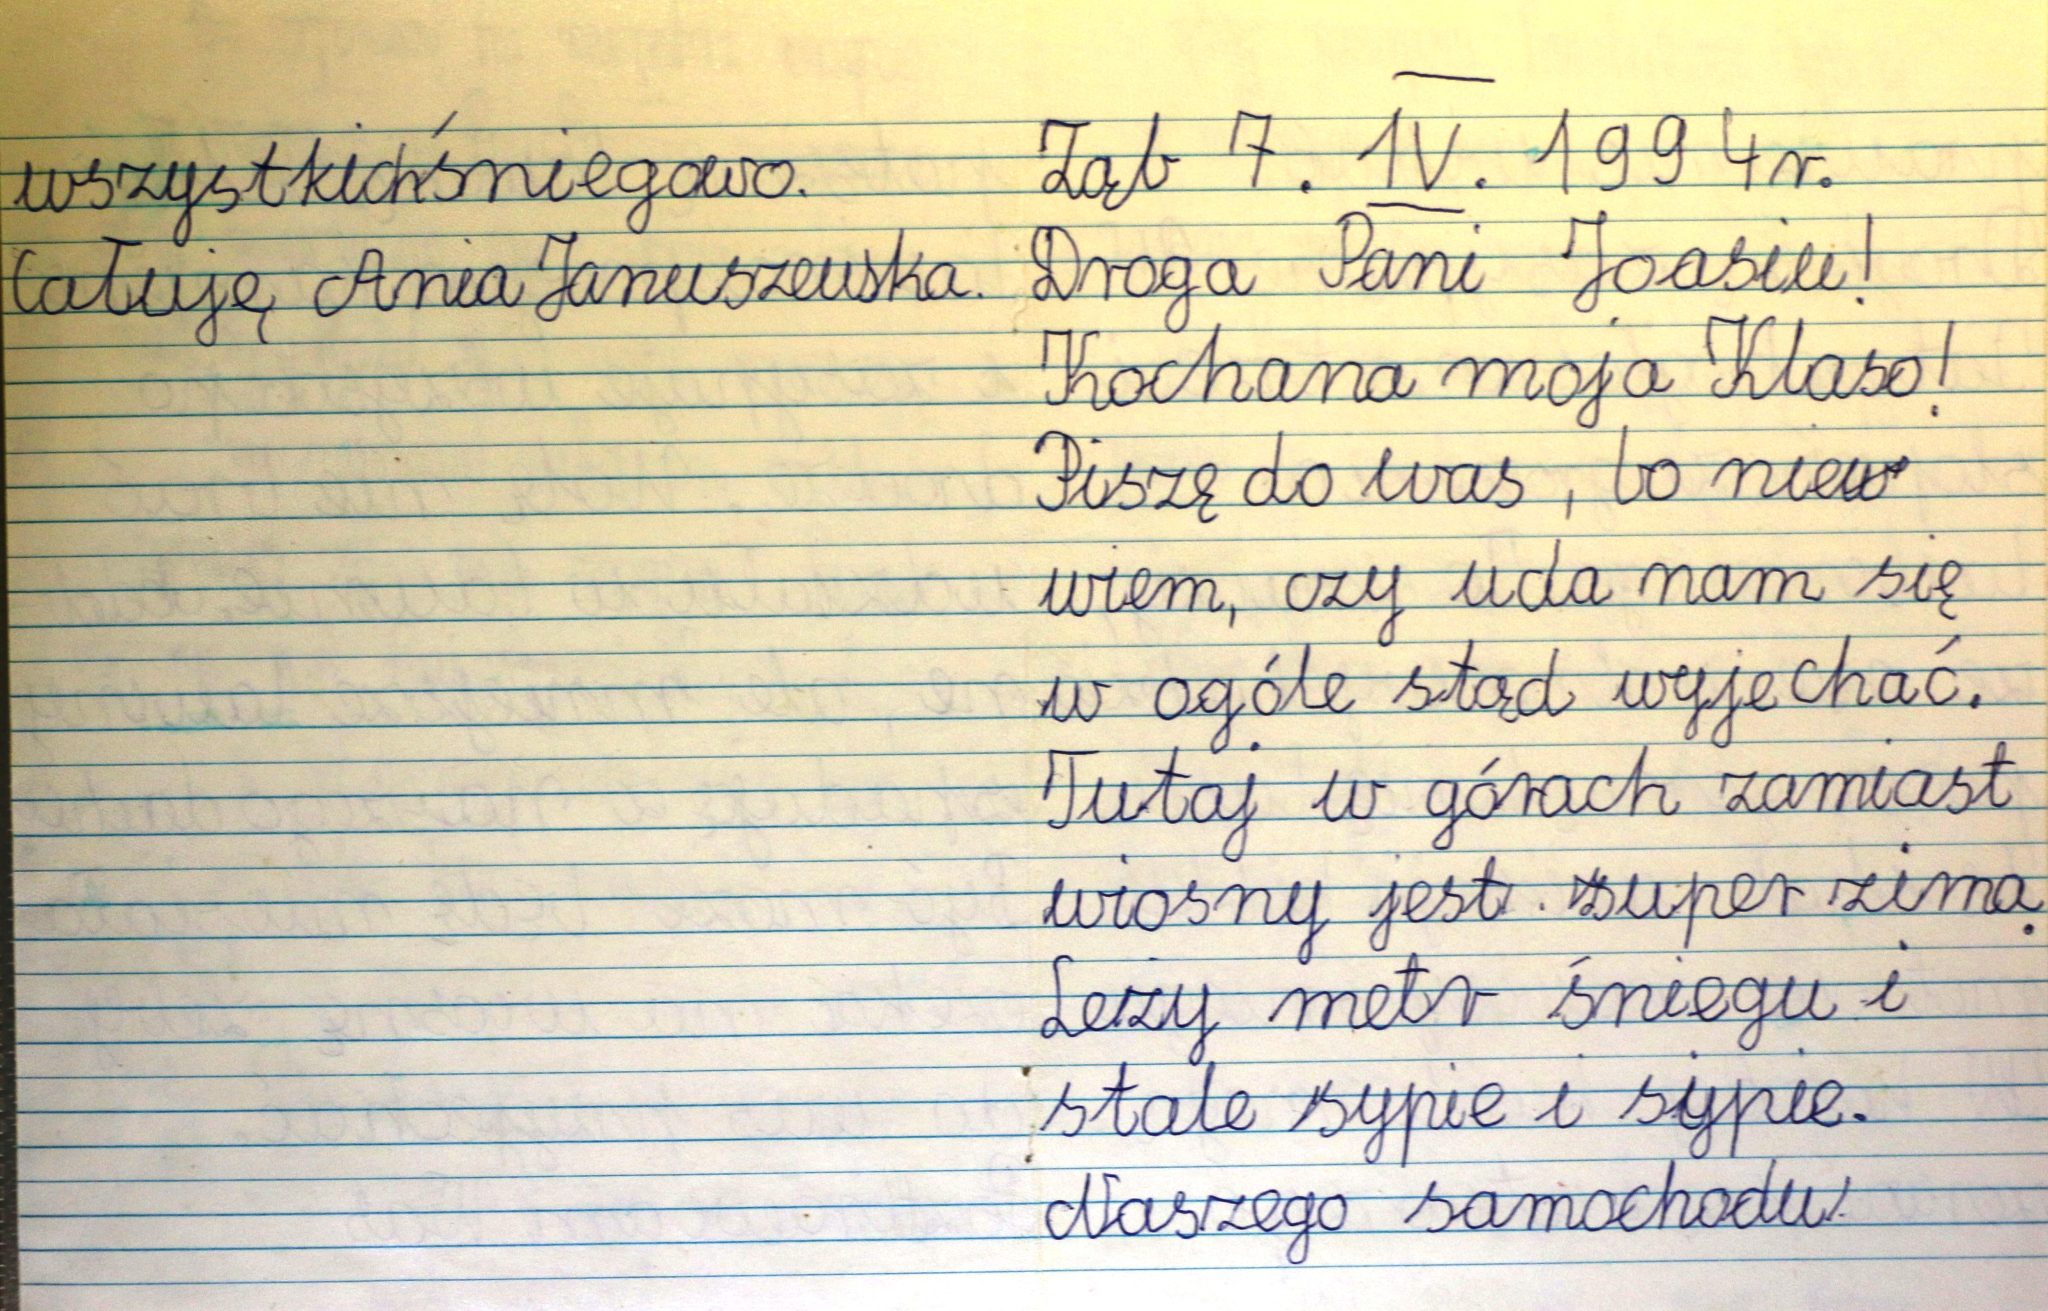 wszystkich śniegowo.
Całuję Ania Januszewska.
Ząb 7. IV. 1994r.
Droga Pani Joasiu!
Kochana moja Klaso!
Piszę do was, bo nie
wiem, czy uda nam się
w ogóle stąd wyjechać.
Tutaj w górach zamiast
wiosny jest super zima.
Leży metr śniegu i
stale sypie i sypie.
Naszego samochodu